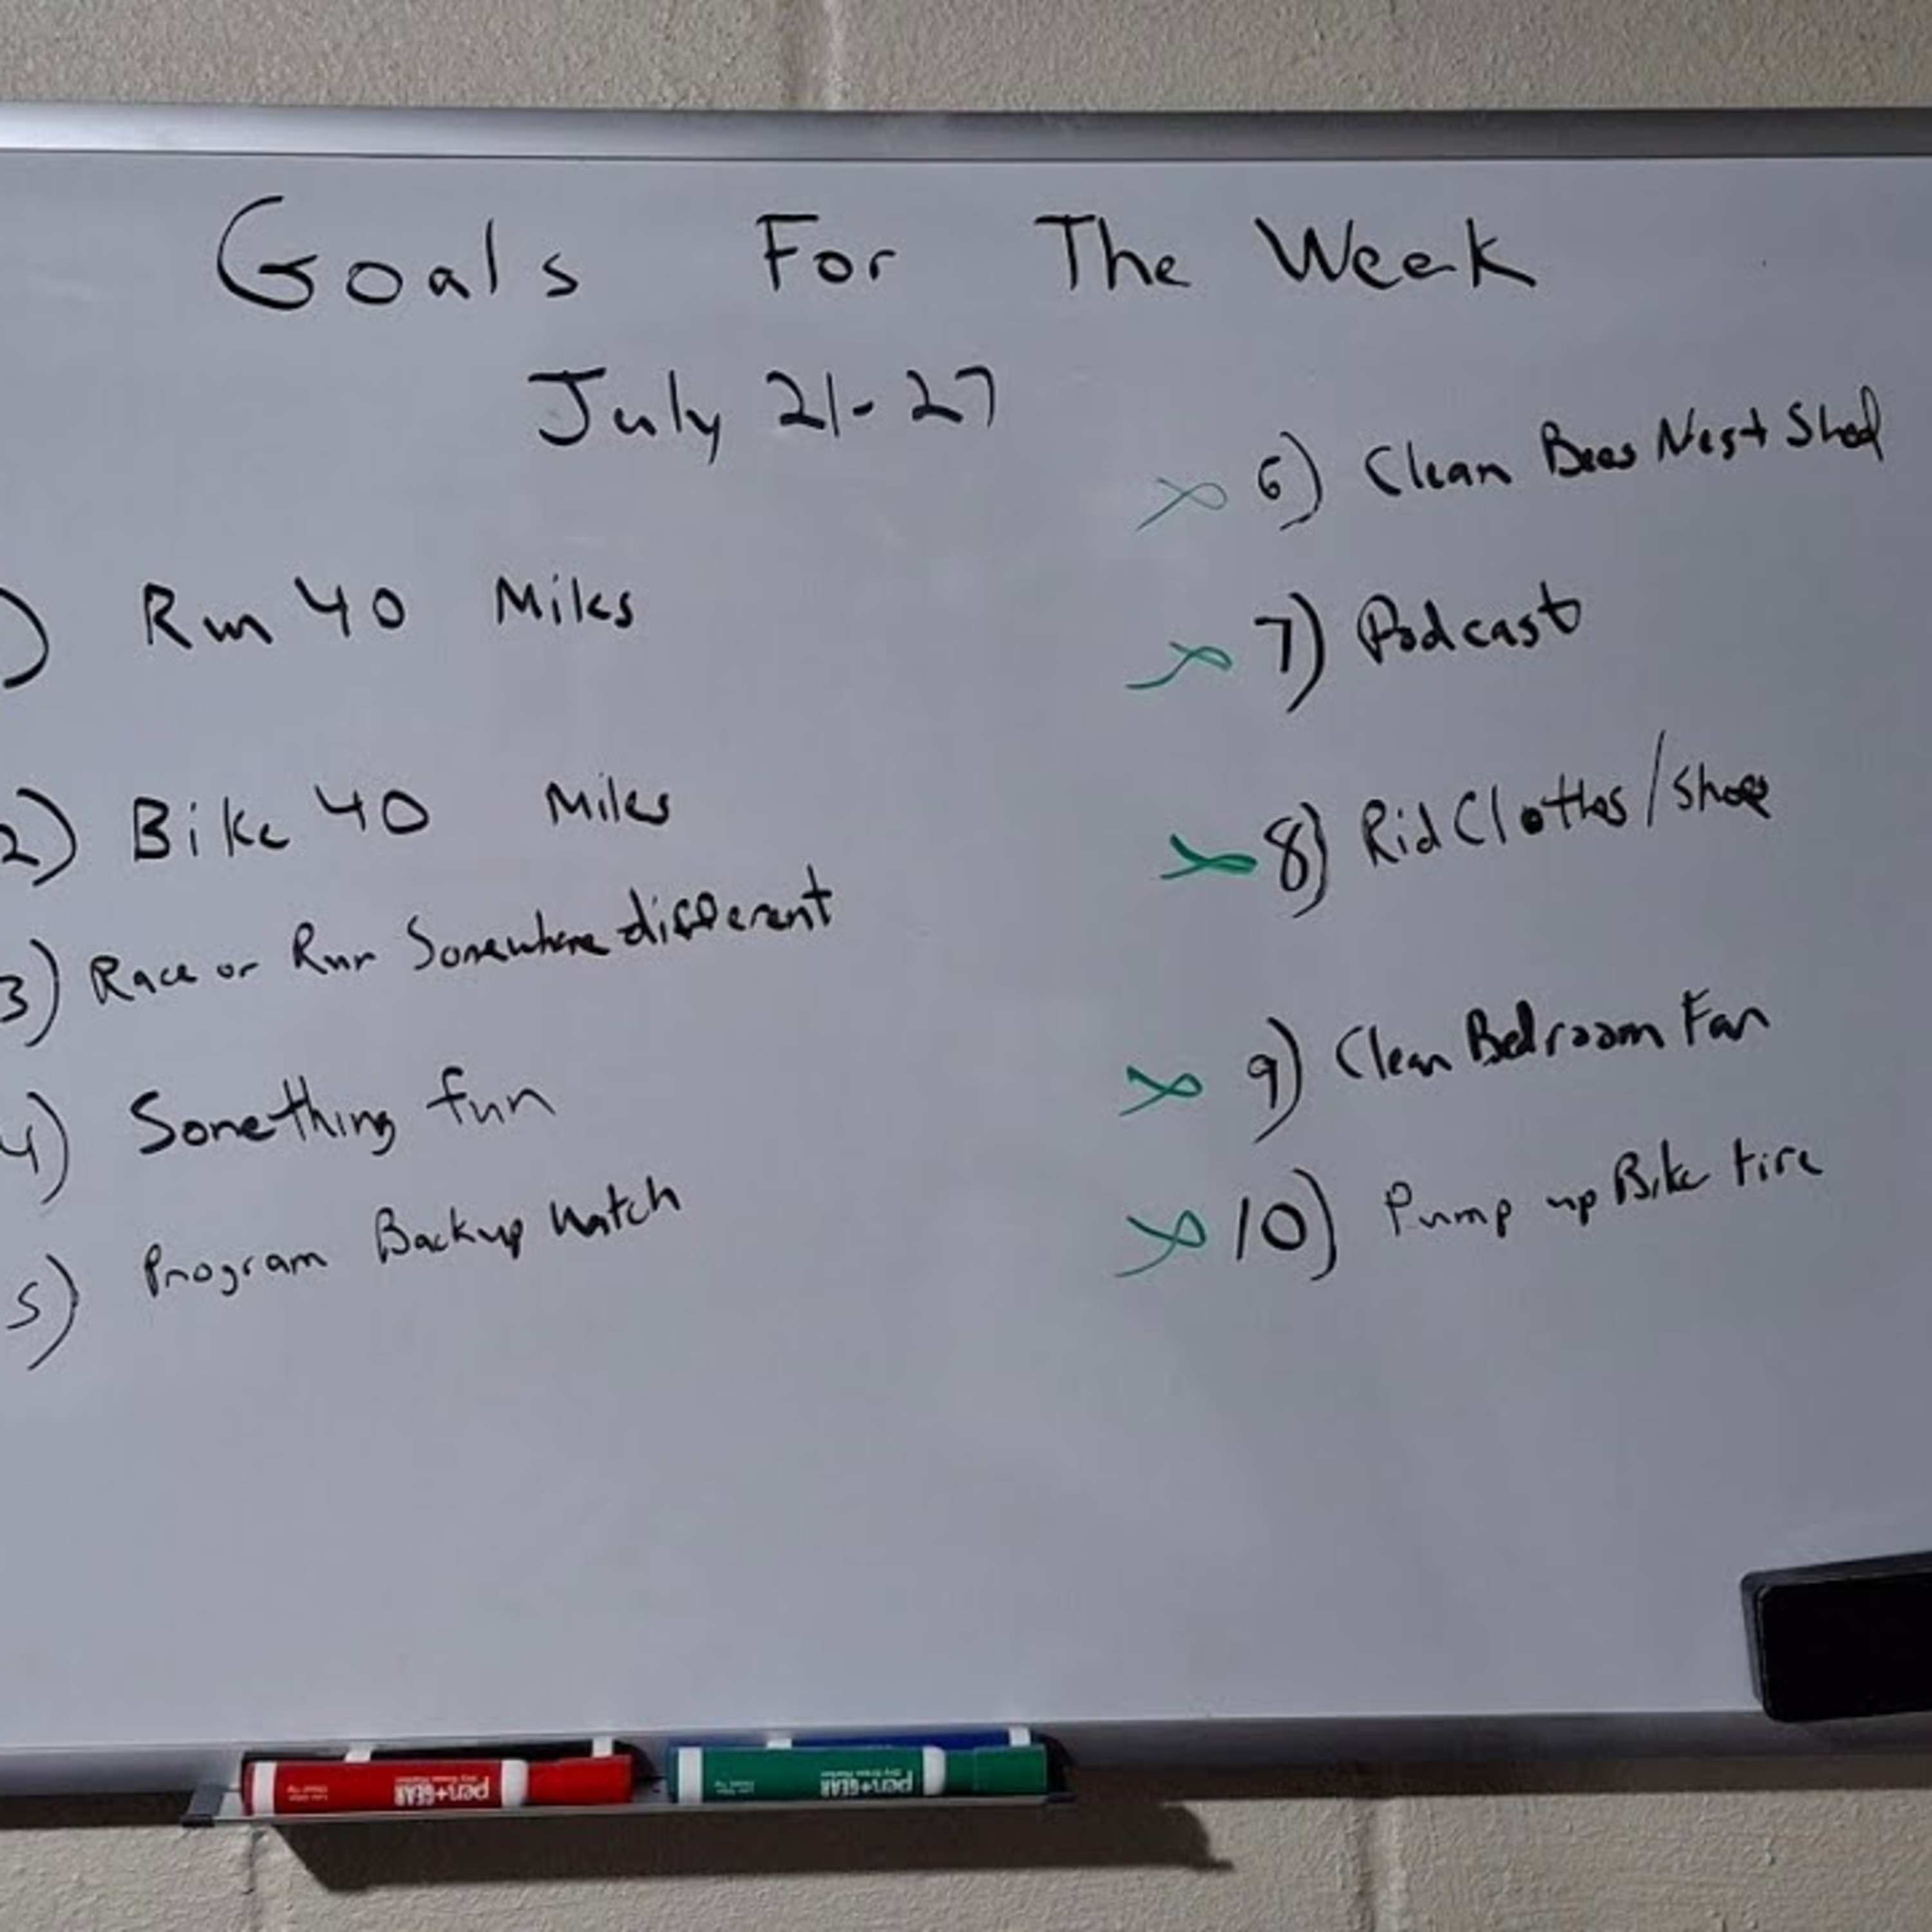 Goals For The Week
July 21-27
) Run 40 Miles
2) Bike 40 Miles
3) Race or Run Somewhere different
4) Something fun
5) Program Backup Watch
6) Clean Bees Nest Shed
7) Podcast
8) Rid Clothes/Shoes
9) Clean Bedroom Fan
10) Pump up Bike tire
pen+GEAR
pen+GEAR